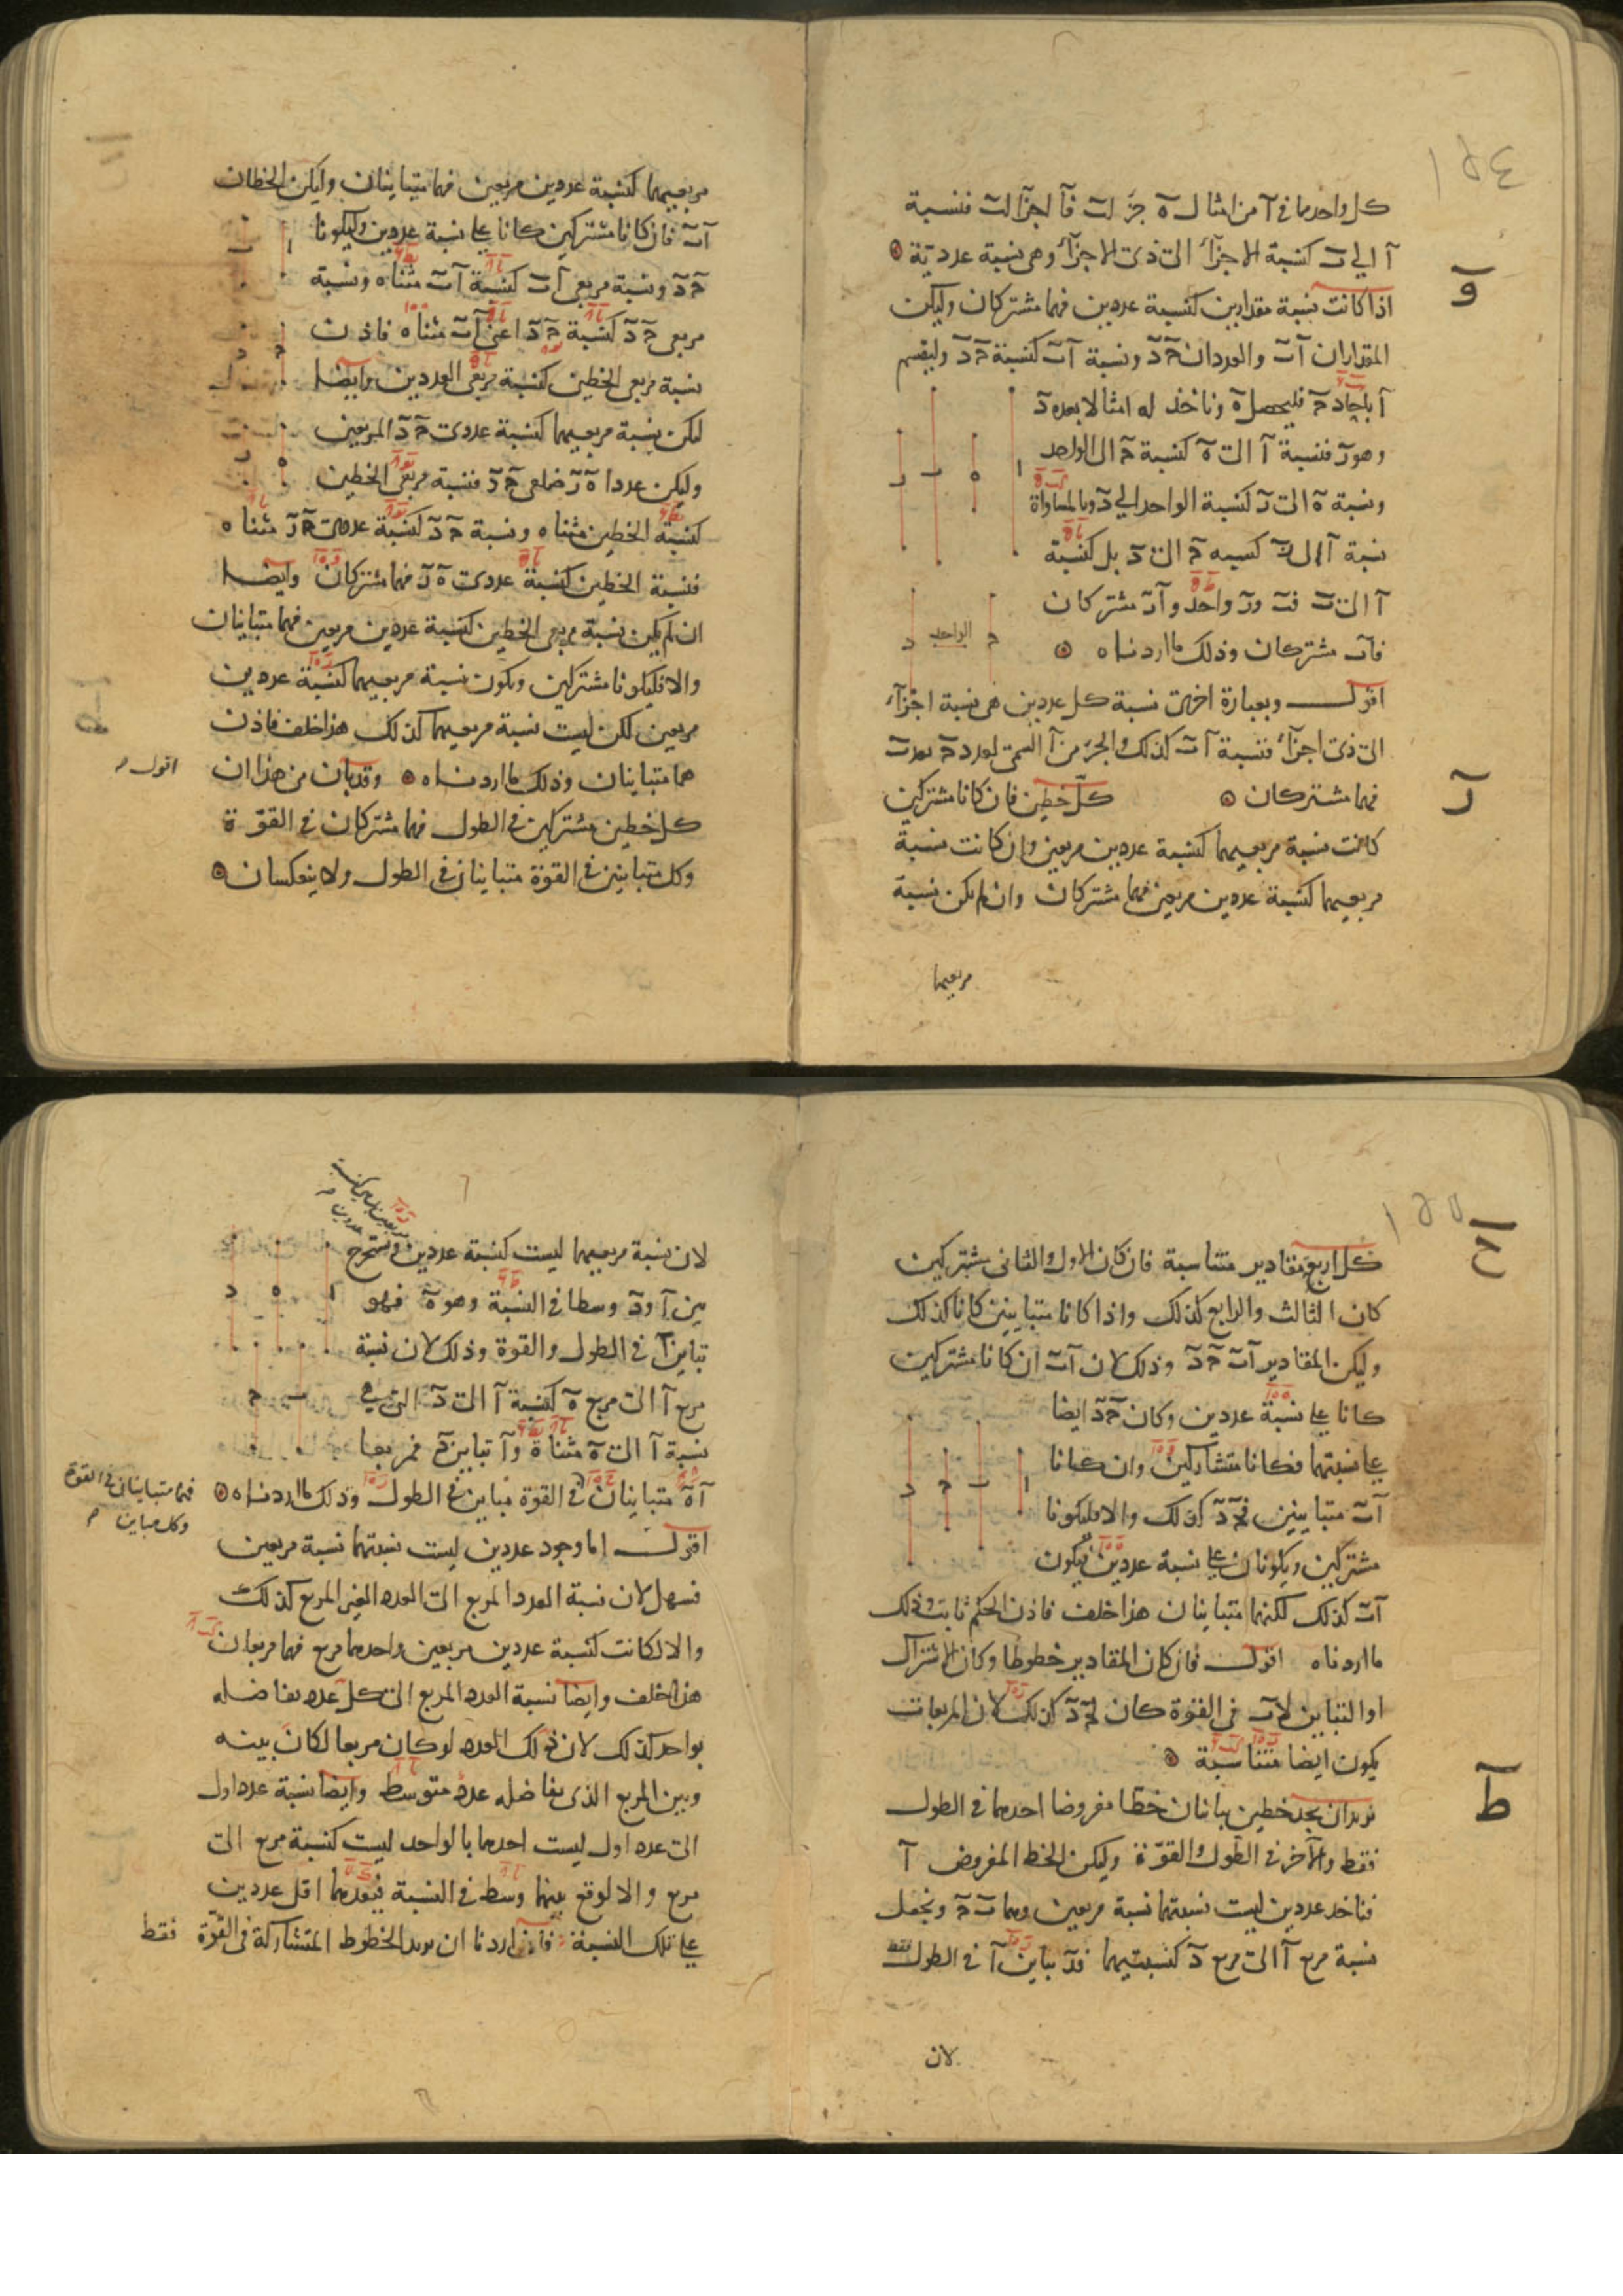 ١٥٤
كل واحد مما في آ من امثال ه جزء لب فآ اجزاء لب فنسبة
آ الى ب كنسبة الاجزاء الى ذى الاجزاء وهى نسبة عددية
و
اذا كانت نسبة مقدارين كنسبة عددين فهما مشتركان وليكن
المقداران آ ب والعددان ح د ونسبة آ ب كنسبة ح د وليقسم
آ باحاد ح فليحصل ه وناخذ له امثالا بعدد د
وهو ر فنسبة آ الى ه كنسبة ح الى الواحد
ونسبة ه الى ر كنسبة الواحد الى د وبالمساواة
نسبة آ الى ر كنسبة ح الى د بل كنسبة
آ الى ب فب ور واحد و آ ر مشتركان
فآب مشتركان وذلك ما اردناه
الواحد
اقول وبعبارة اخرى نسبة كل عددين هى نسبة اجزاء
الى ذى اجزاء فنسبة آ ب كذلك والجزء من آ السمى لعدد ح يعد ب
فهما مشتركان
ز
كل خطين فان كانا مشتركين
كانت نسبة مربعيهما كنسبة عددين مربعين وان كانت نسبة
مربعيهما كنسبة عددين مربعين فهما مشتركان وان لم يكن نسبة
مربعيهما
مربعيهما كنسبة عددين مربعين فهما متباينان وليكن الخطان
آ ب فان كانا مشتركين كانا على نسبة عددين وليكونا
ح د ونسبة مربعى آ ب كنسبة آ ب مثناه ونسبة
مربعى ح د كنسبة ح د اعنى آ ب مثناه فاذن
نسبة مربعى الخطين كنسبة مربعى العددين وايضا
ليكن نسبة مربعيهما كنسبة عددى ح د المربعين
وليكن عددا ه ر ضلعى ح د فنسبة مربعى الخطين
كنسبة الخطين مثناه ونسبة ح د كنسبة عددى ه ر مثناه
فنسبة الخطين كنسبة عددى ه ر فهما مشتركان وايضا
ان لم يكن نسبة مربعى الخطين كنسبة عددين مربعين فهما متباينان
والا فليكونا مشتركين ويكون نسبة مربعيهما كنسبة عددين
مربعين لكن ليست نسبة مربعيهما كذلك هذا خلف فاذن
هما متباينان وذلك ما اردناه وقد بان من هذا ان
اقول
كل خطين مشتركين في الطول فهما مشتركان في القوة
وكل متباينين في القوة متباينان في الطول ولا ينعكسان
١٥٥
ح
كل اربع مقادير متناسبة فان كان الاول والثانى مشتركين
كان الثالث والرابع كذلك واذا كانا متباينين كانا كذلك
وليكن المقادير آ ب ح د وذلك لان آ ب ان كانا مشتركين
كانا على نسبة عددين وكان ح د ايضا
على نسبتهما فكانا متشاركين وان كانا
آ ب متباينين فح د كذلك والا فليكونا
مشتركين ويكونان على نسبة عددين فيكون
آ ب كذلك لكنهما متباينان هذا خلف فاذن الحكم ثابت وذلك
ما اردناه اقول فان كان المقادير خطوطا وكان الاشتراك
او التباين لآب في القوة كان لح د كذلك لان المربعات
يكون ايضا متناسبة
ط
نريد ان نجد خطين يباينان خطا مفروضا احدهما في الطول
فقط والآخر في الطول والقوة وليكن الخط المفروض آ
فناخذ عددين ليست نسبتهما نسبة مربعين وهما ب ح ونجعل
نسبة مربع آ الى مربع د كنسبتيهما فد يباين آ في الطول فقط
لان
لان نسبة مربعيهما ليست كنسبة عددين ونستخرج
بين آ ود وسطا في النسبة وهو ه فهو
يباين آ في الطول والقوة وذلك لان نسبة
مربع آ الى مربع ه كنسبة آ الى د التى هى
نسبة آ الى ه مثناة و آ يباين د فمربعا
آ ه متباينان في القوة مباين في الطول وذلك ما اردناه
فهما متباينان في القوة
وكل مباين
اقول اما وجود عددين ليست نسبتهما نسبة مربعين
فسهل لان نسبة العدد المربع الى العدد الغير المربع كذلك
والا لكانت كنسبة عددين مربعين واحدهما مربع فهما مربعان
هذا خلف وايضا نسبة العدد المربع الى كل عدد يفاضله
بواحد كذلك لان ذلك العدد لو كان مربعا لكان بينه
وبين المربع الذى يفاضله عدد متوسط وايضا نسبة عدد اول
الى عدد اول ليست احدهما بالواحد ليست كنسبة مربع الى
مربع والا لوقع بينهما وسط في النسبة فيعدهما اقل عددين
على تلك النسبة فان اردنا ان نريد الخطوط المتشاركة في القوة فقط